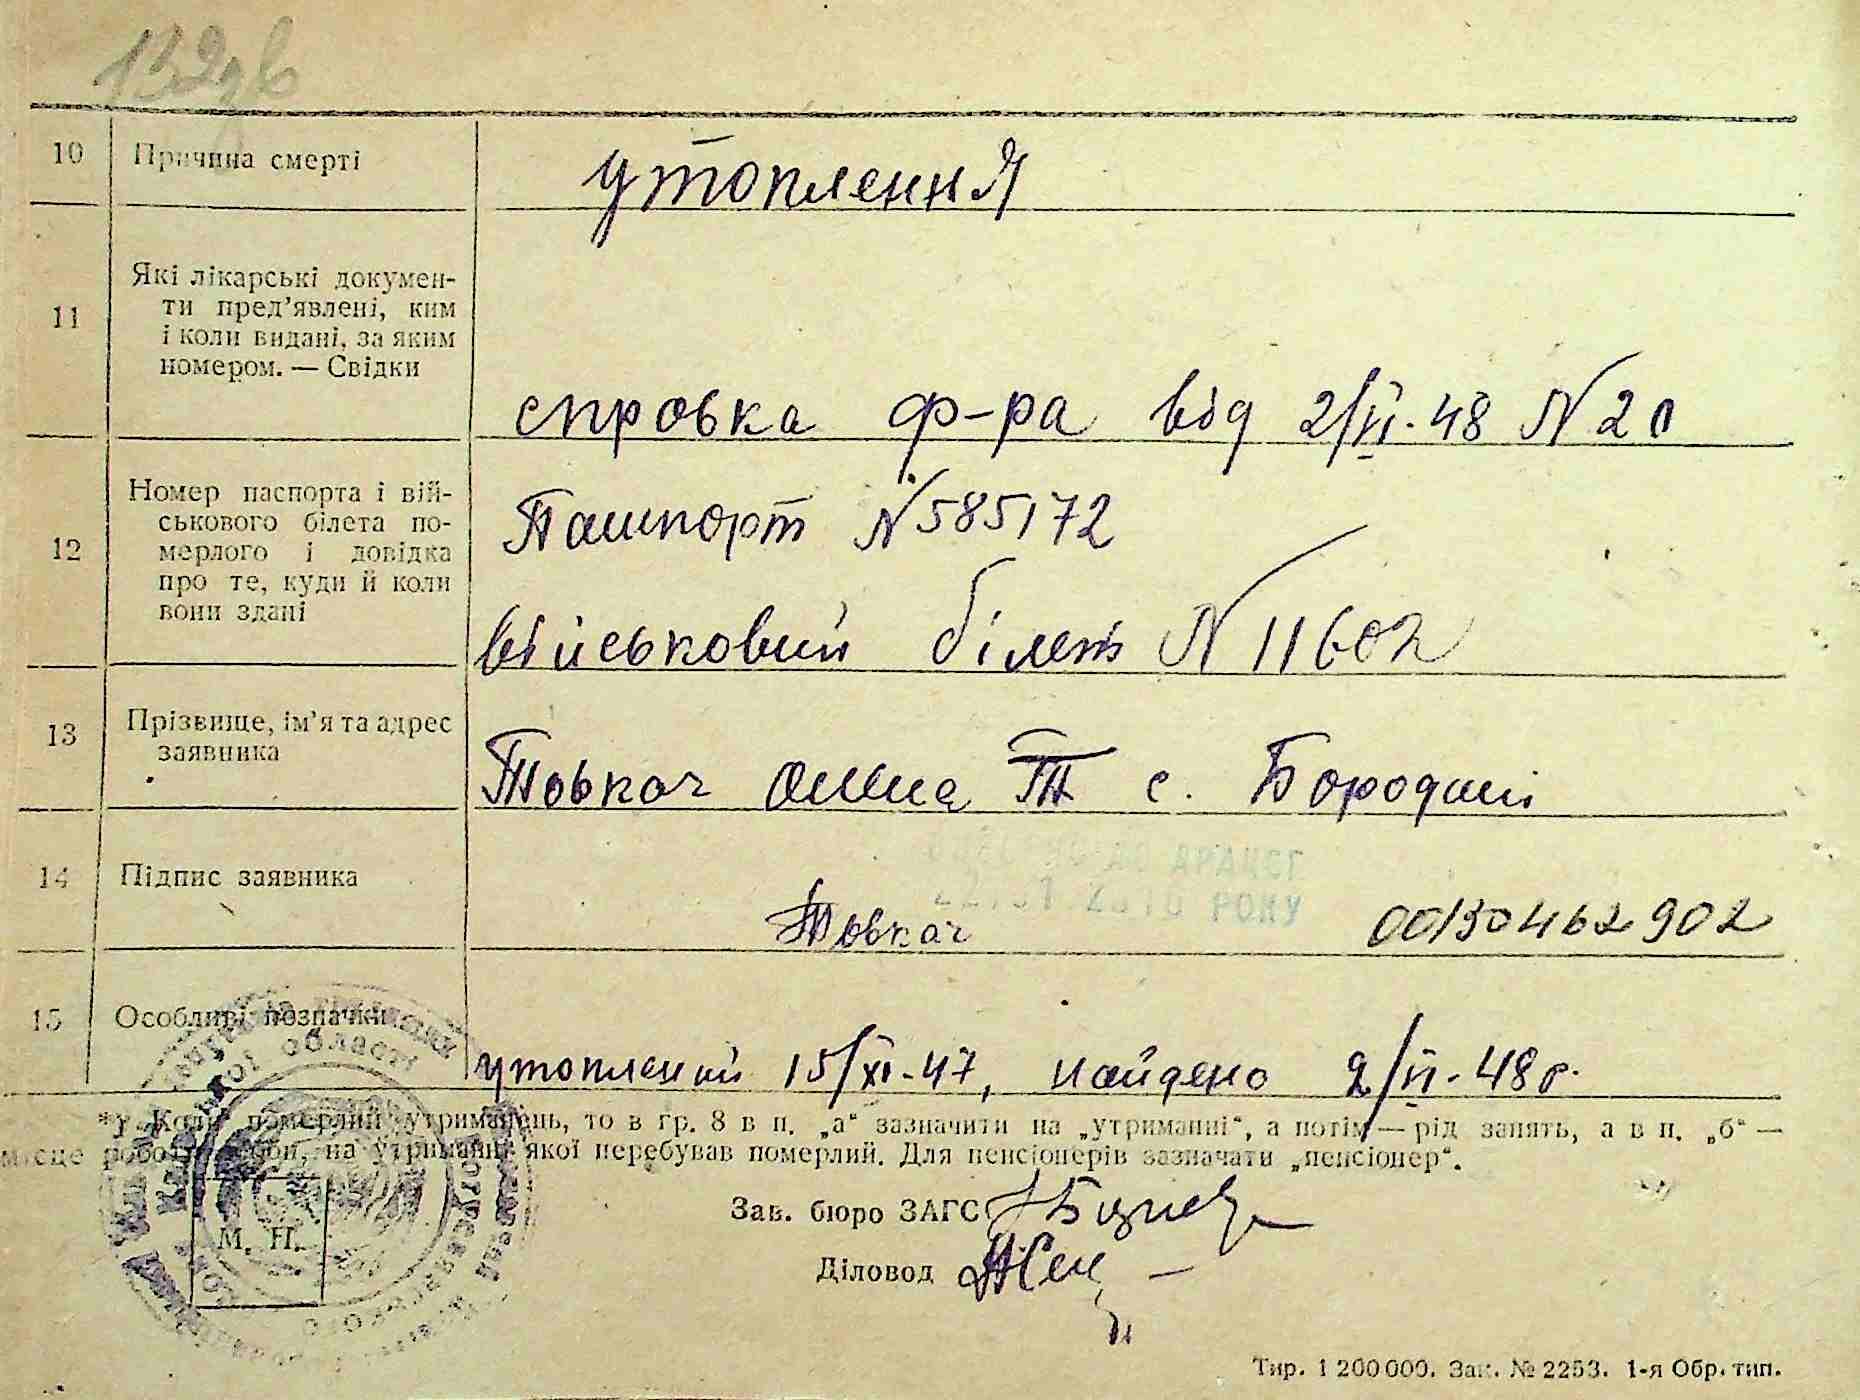 10 Причина смерті
утоплення
11 Які лікарські докумен-
ти пред’явлені, ким
і коли видані, за яким
номером. — Свідки
спровка ф-ра від 2/VI.48 N 20
12 Номер паспорта і вій-
ськового білета по-
мерлого і довідка
про те, куди й коли
вони здані
Пашпорт N 585172
військовий білет N 11602
13 Прізвище, ім’я та адрес
заявника
Товкач Т с. Бородані
14 Підпис заявника
АРАЦСГ
РОКУ
Товкач 00130462902
15 Особливі позначки
утоплений 15/XI-47, найдено 2/VI-48 р.
*у Коли померлий утриманець, то в гр. 8 в п. „а“ зазначити на „утриманні“, а потім — рід занять, а в п. „б“ —
місце роботи особи, на утриманні якої перебував померлий. Для пенсіонерів зазначати „пенсіонер“.
області
М. П.
Зав. бюро ЗАГС
Діловод
Тир. 1 200 000. Зак. № 2253. 1-я Обр. тип.